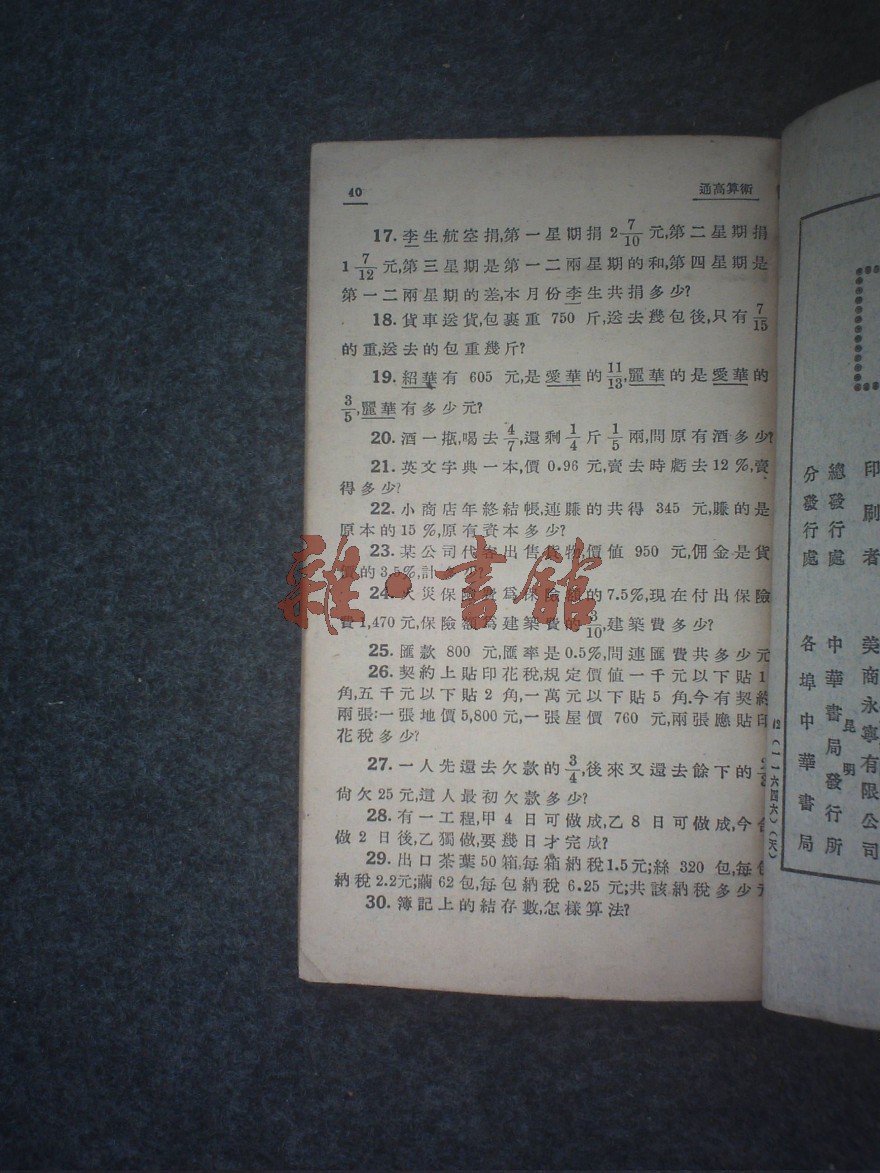 40
通高算術
17. 李生航空捐,第一星期捐 2 7/10 元,第二星期捐
1 7/12 元,第三星期是第一二兩星期的和,第四星期是
第一二兩星期的差,本月份李生共捐多少?
18. 貨車送貨,包裹重 750 斤,送去幾包後,只有 7/15
的重,送去的包重幾斤?
19. 紹華有 605 元,是愛華的 11/13,麗華的是愛華的
3/5,麗華有多少元?
20. 酒一瓶,喝去 4/7,還剩 1/4 斤 1/5 兩,問原有酒多少?
21. 英文字典一本,價 0.96 元,賣去時虧去 12%,賣
得多少?
22. 小商店年終結帳,連賺的共得 345 元,賺的是
原本的 15%,原有資本多少?
23. 某公司代客出售貨物,價值 950 元,佣金是貨
價的 3.5%,計多少?
24. 火災保險費爲保險額的 7.5%,現在付出保險
費 1,470 元,保險額爲建築費的 3/10,建築費多少?
25. 匯款 800 元,匯率是 0.5%,問連匯費共多少元
26. 契約上貼印花稅,規定價值一千元以下貼 1
角,五千元以下貼 2 角,一萬元以下貼 5 角.今有契約
兩張:一張地價 5,800 元,一張屋價 760 元,兩張應貼印
花稅多少?
27. 一人先還去欠款的 3/4,後來又還去餘下的
尚欠 25 元,這人最初欠款多少?
28. 有一工程,甲 4 日可做成,乙 8 日可做成,今合
做 2 日後,乙獨做,要幾日才完成?
29. 出口茶葉 50 箱,每箱納稅 1.5 元;絲 320 包,每包
納稅 2.2 元;繭 62 包,每包納稅 6.25 元;共該納稅多少元
30. 簿記上的結存數,怎樣算法?
雜·書館
印刷者 美商永寧有限公司
總發行處 中華書局發行所
昆明
分發行處 各埠中華書局
(一一六四六)(天)